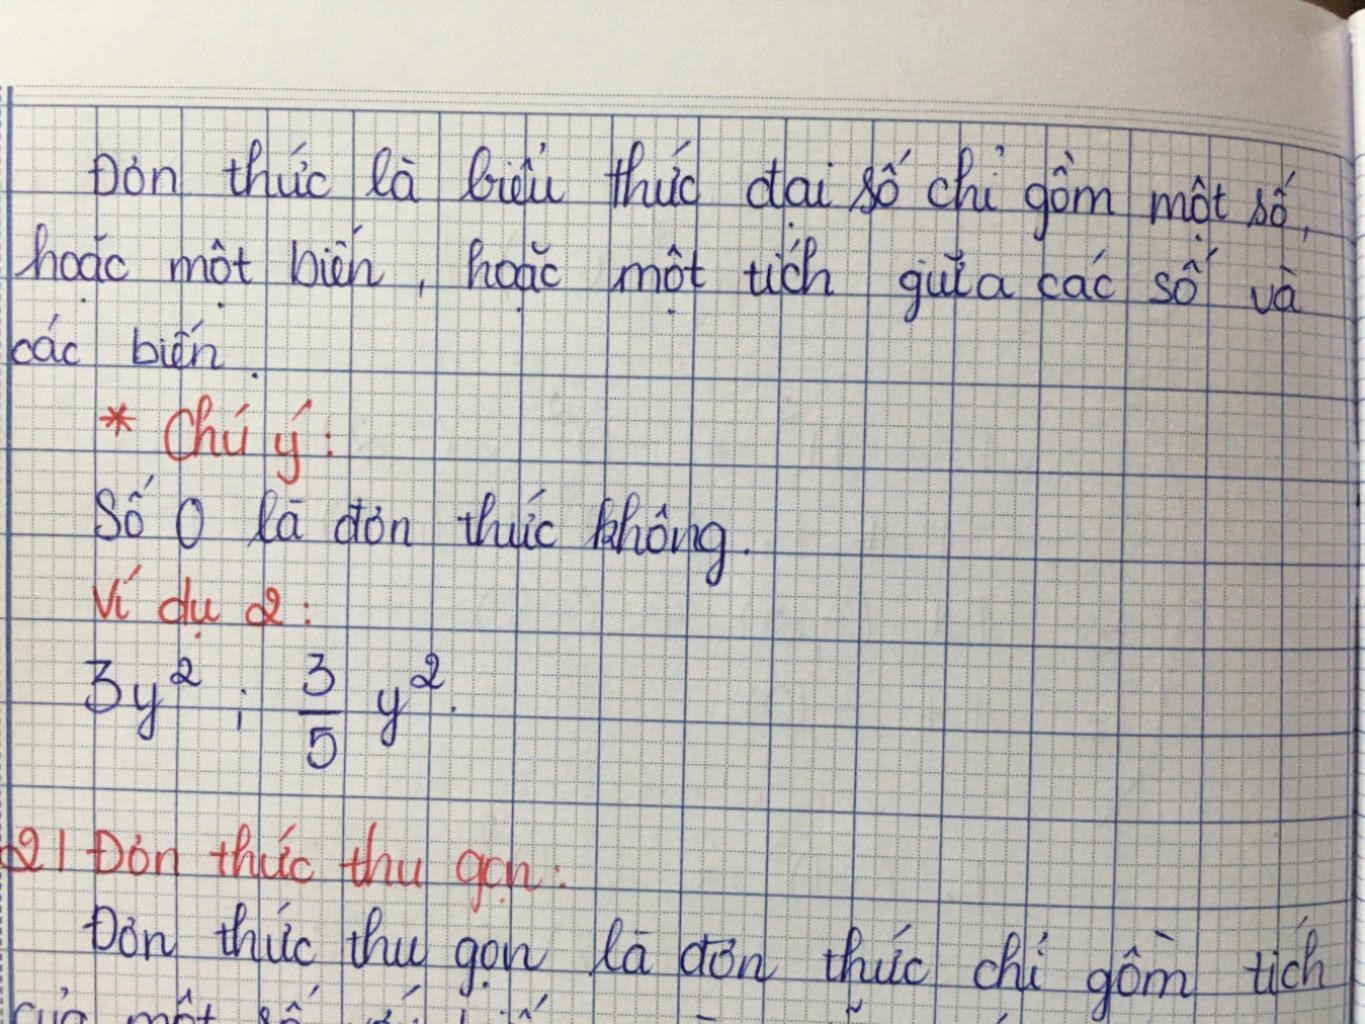 Đơn thức là biểu thức đại số chỉ gồm một số,
hoặc một biến, hoặc một tích giữa các số và
các biến.
* Chú ý:
Số 0 là đơn thức không.
Ví dụ 2:
3y² ; 3/5 y².
2) Đơn thức thu gọn:
Đơn thức thu gọn là đơn thức chỉ gồm tích
của một số